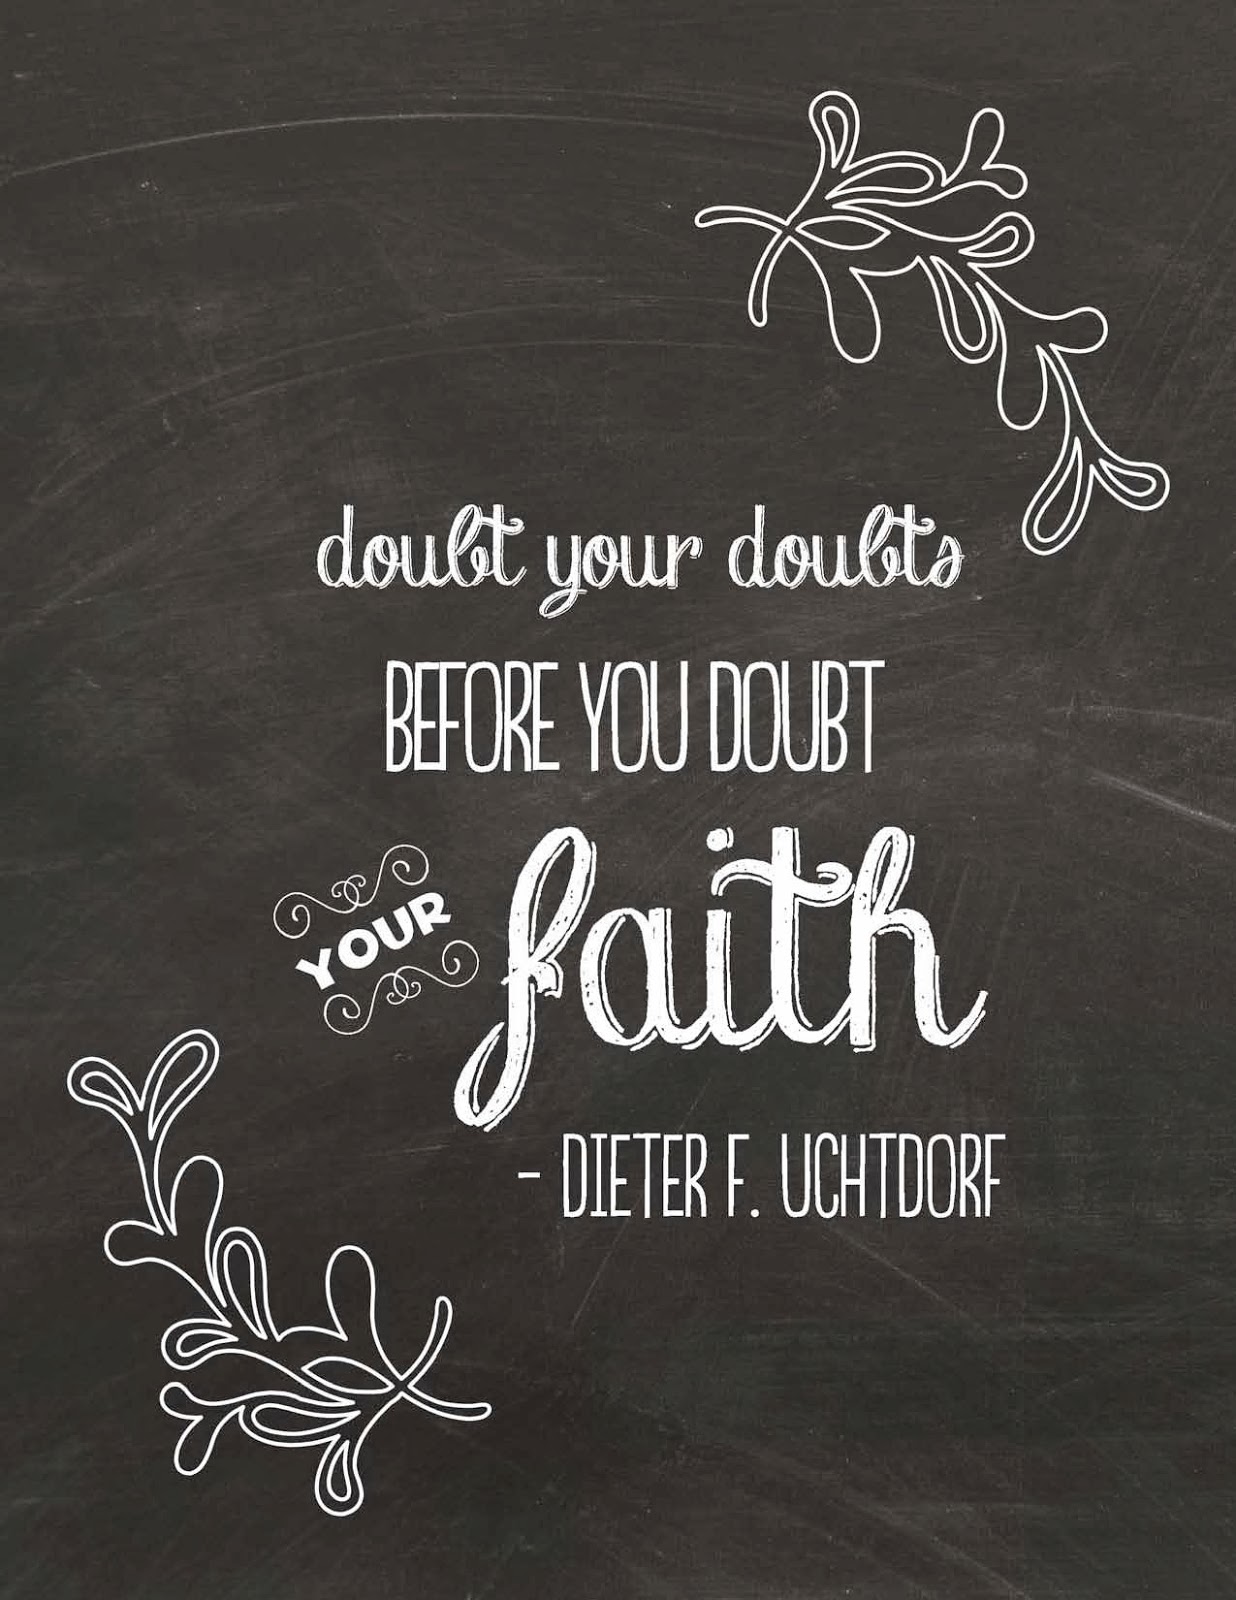 doubt your doubts
BEFORE YOU DOUBT
YOUR faith
- DIETER F. UCHTDORF